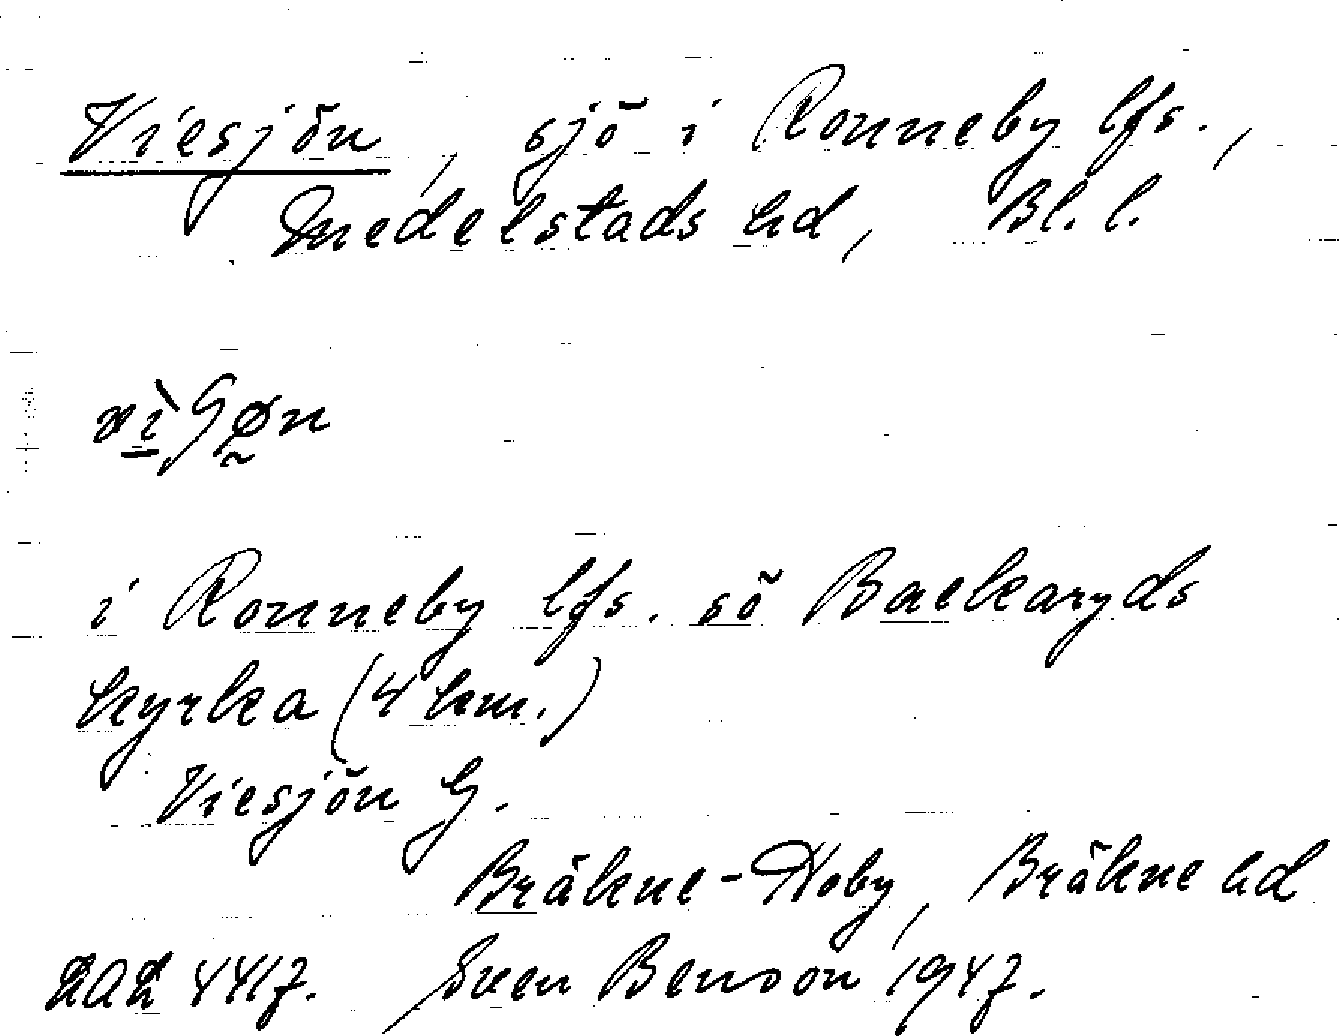 Viesjön, sjö i Ronneby lfs.,
Medelstads hd, Bl. l.
i Ronneby lfs. sö Backaryds
kyrka (4 km.)
Viesjön G.
Bräkne-Hoby, Bräkne hd
LAL 4417. Sven Benson 1947.